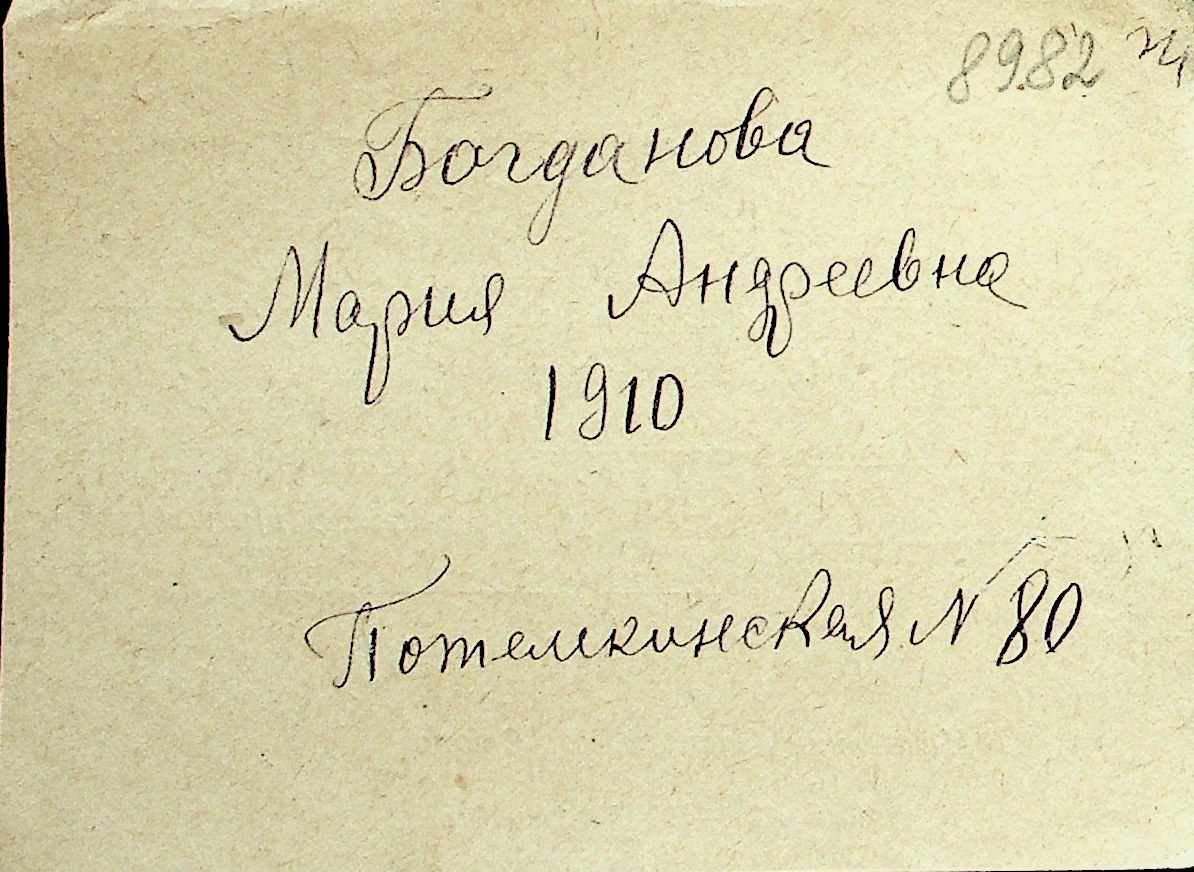 8982
Богданова
Мария Андреевна
1910
Потемкинская N 80